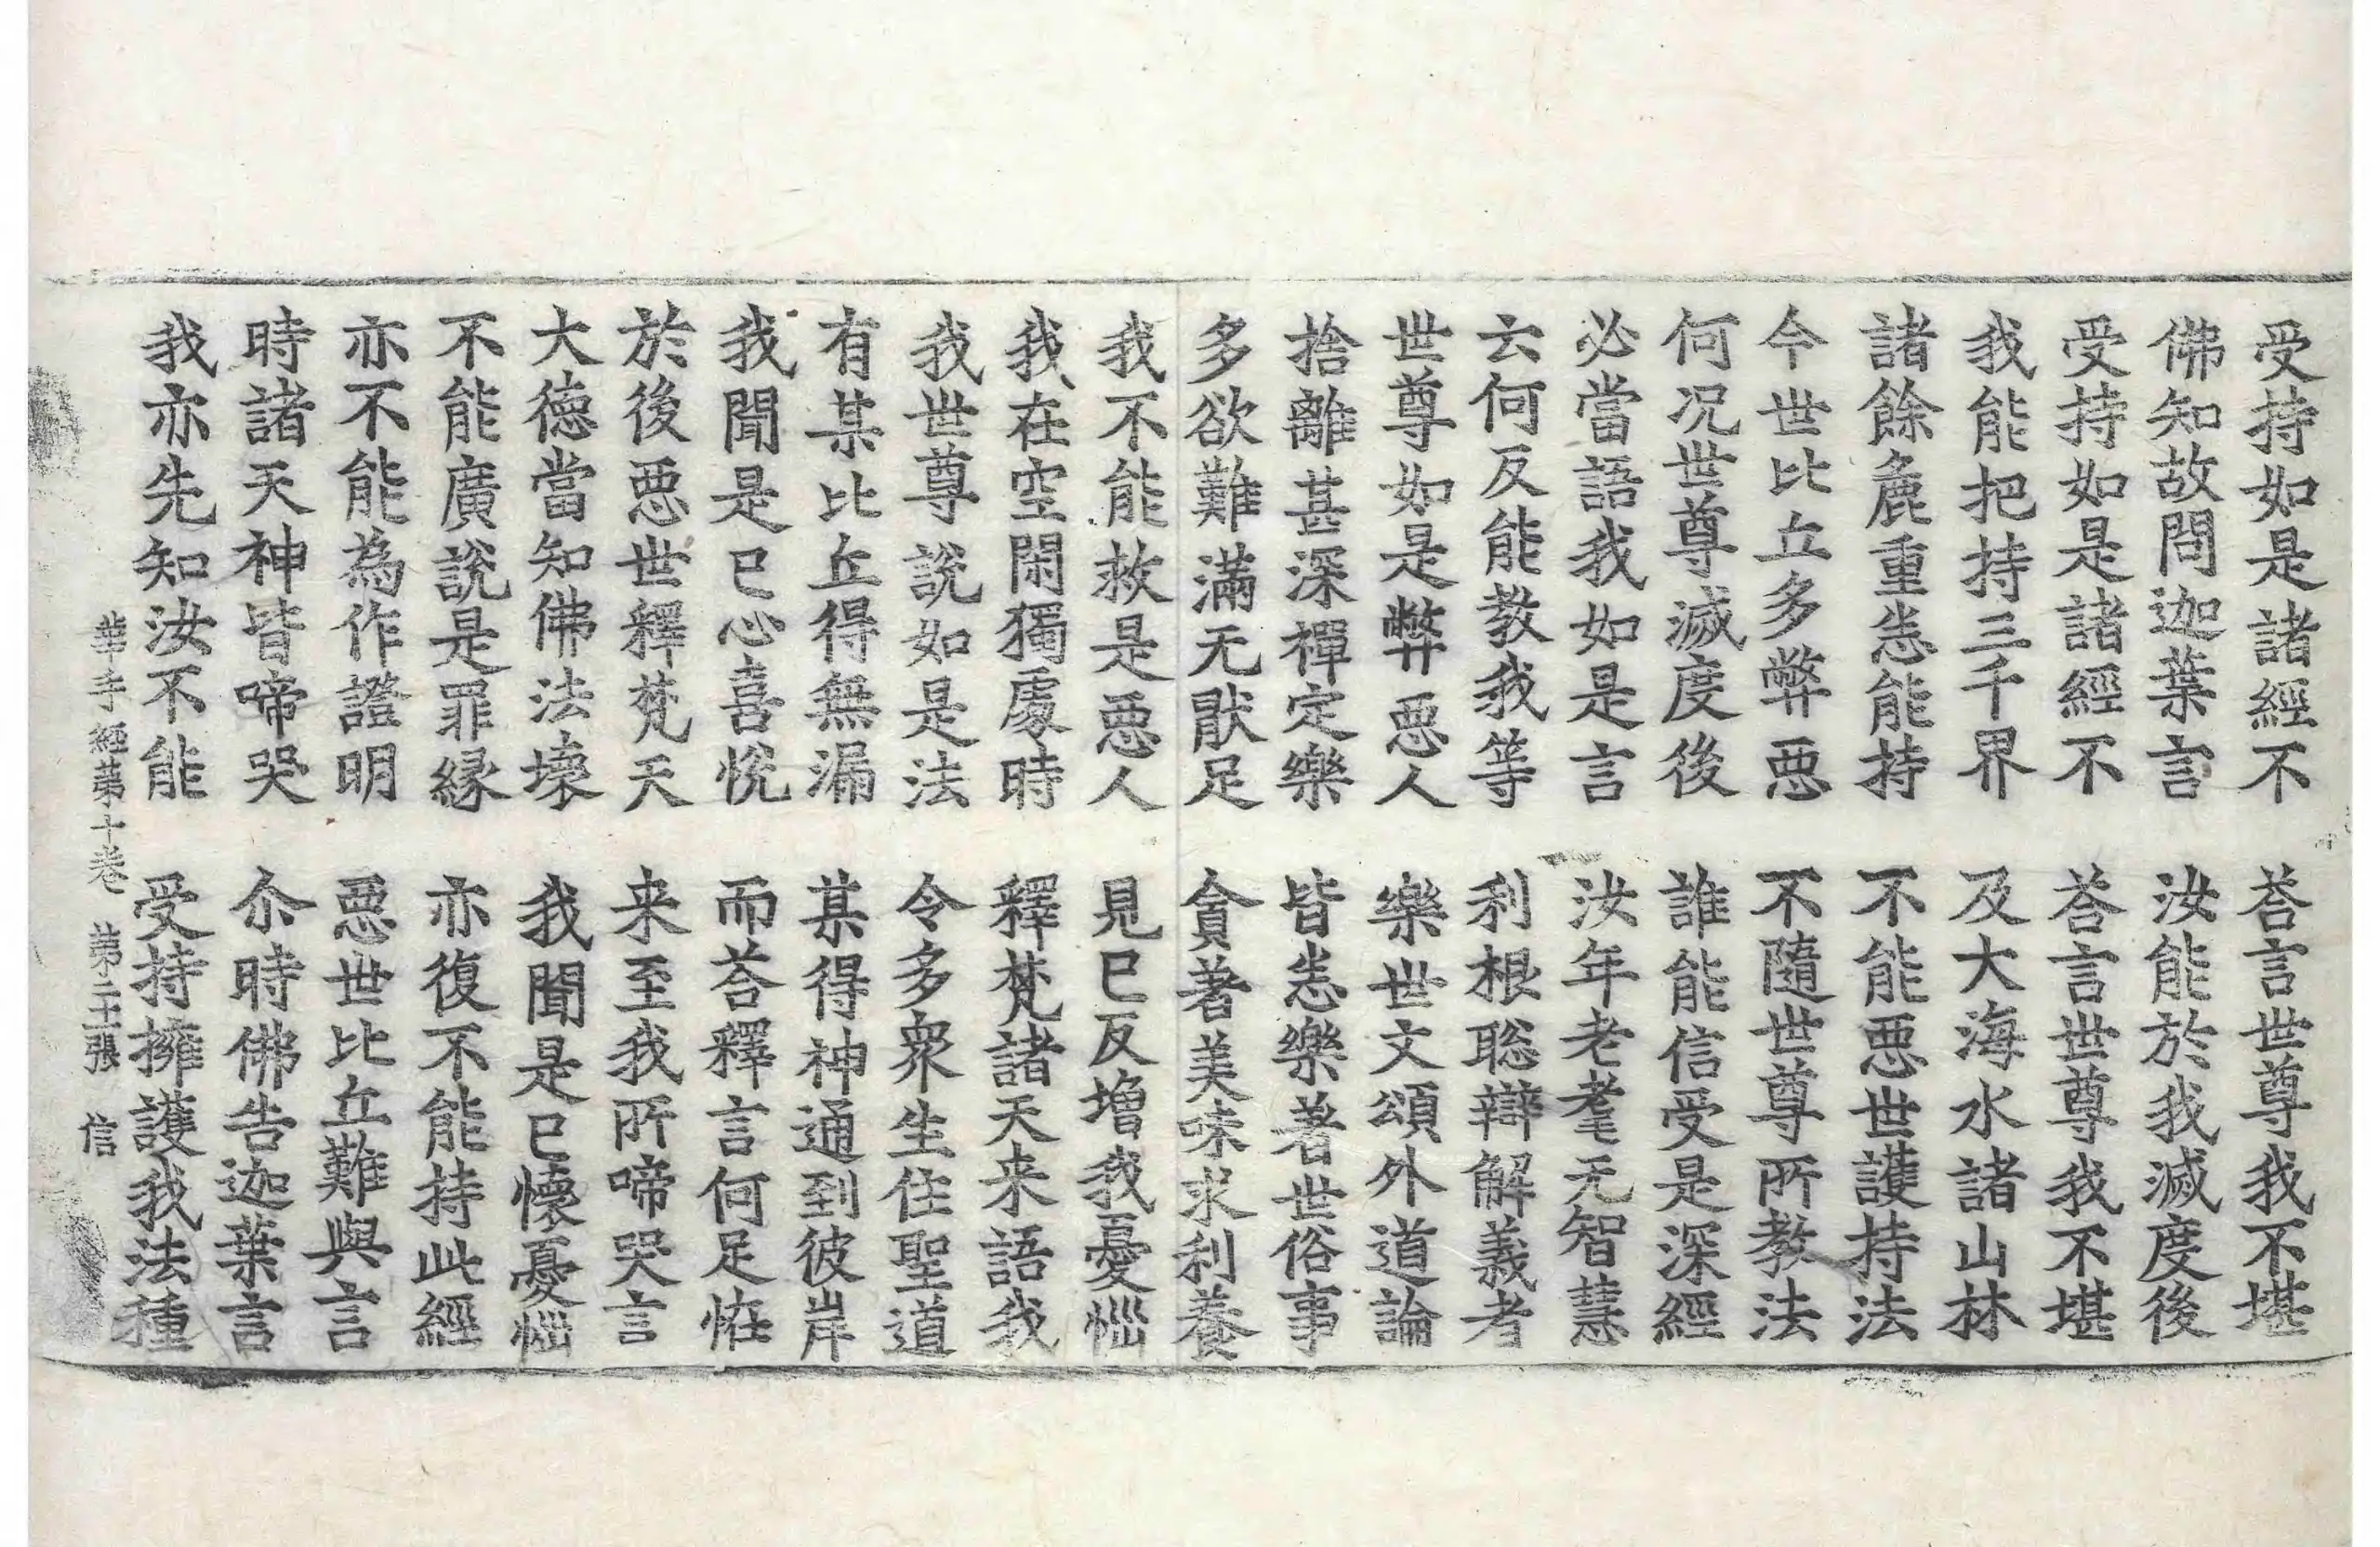 受持如是諸經不　荅言世尊我不堪
佛知故問迦葉言　汝能於我滅度後
受持如是諸經不　荅言世尊我不堪
我能把持三千界　及大海水諸山林
諸餘麁重悉能持　不能惡世護持法
今世比丘多弊惡　不隨世尊所教法
何況世尊滅度後　誰能信受是深經
必當語我如是言　汝年老耄无智慧
云何反能教我等　利根聡辯解義者
世尊如是弊惡人　樂世文頌外道論
捨離甚深禪定樂　皆悉樂著世俗事
多欲難滿无猒足　貪著美味求利養
我不能救是惡人　見已反增我憂惱
我在空閑獨處時　釋梵諸天来語我
我世尊說如是法　令多衆生住聖道
有某比丘得無漏　某得神通到彼岸
我聞是已心喜悅　而荅釋言何足恠
於後惡世釋梵天　来至我所啼哭言
大德當知佛法壞　我聞是已懷憂惱
不能廣說是罪緣　亦復不能持此經
亦不能為作證明　惡世比丘難與言
時諸天神皆啼哭　尒時佛告迦葉言
我亦先知汝不能　受持擁護我法種
華手經第十卷　第二十張　信